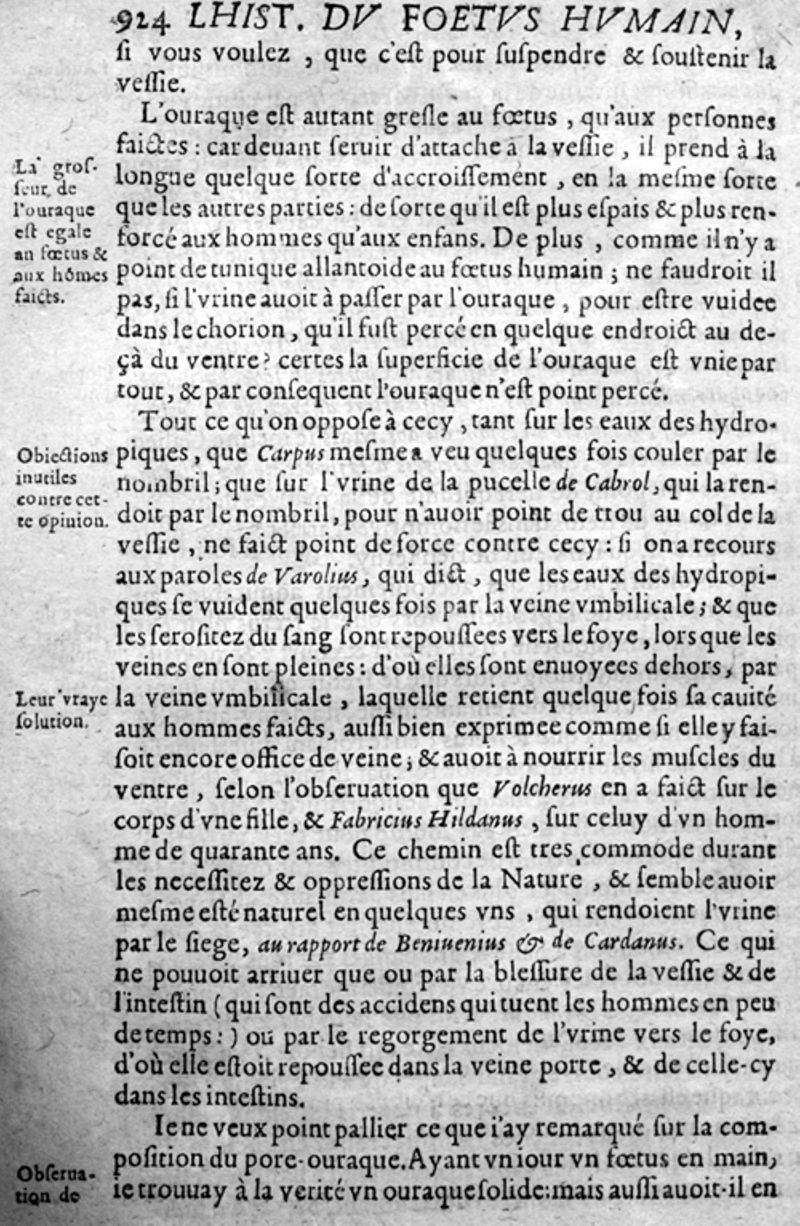 924 LHIST. DV FOETVS HVMAIN,
ſi vous voulez, que c'eſt pour ſuſpendre & ſouſtenir la
veſſie.
L'ouraque eſt autant greſle au fœtus, qu'aux perſonnes
faictes : car deuant ſeruir d'attache à la veſſie, il prend à la
longue quelque ſorte d'accroiſſement, en la meſme ſorte
que les autres parties : de ſorte qu'il eſt plus eſpais & plus ren-
forcé aux hommes qu'aux enfans. De plus, comme il n'y a
point de tunique allantoide au fœtus humain ; ne faudroit il
pas, ſi l'vrine auoit à paſſer par l'ouraque, pour eſtre vuidee
dans le chorion, qu'il fuſt percé en quelque endroict au de-
çà du ventre? certes la ſuperficie de l'ouraque eſt vnie par
tout, & par conſequent l'ouraque n'eſt point percé.
La groſ-
ſeur de
l'ouraque
eſt egale
au fœtus &
aux hōmes
faicts.
Tout ce qu'on oppoſe à cecy, tant ſur les eaux des hydro-
piques, que Carpus meſme a veu quelques fois couler par le
nombril ; que ſur l'vrine de la pucelle de Cabrol, qui la ren-
doit par le nombril, pour n'auoir point de ttou au col de la
veſſie, ne faict point de force contre cecy : ſi on a recours
aux paroles de Varolius, qui dict, que les eaux des hydropi-
ques ſe vuident quelques fois par la veine vmbilicale ; & que
les feroſitez du ſang ſont repouſſees vers le foye, lors que les
veines en ſont pleines : d'où elles ſont enuoyees dehors, par
la veine vmbilicale, laquelle retient quelque fois ſa cauité
aux hommes faicts, auſſi bien exprimee comme ſi elle y fai-
ſoit encore office de veine ; & auoit à nourrir les muſcles du
ventre, ſelon l'obſeruation que Volcherus en a faict ſur le
corps d'vne fille, & Fabricius Hildanus, ſur celuy d'vn hom-
me de quarante ans. Ce chemin eſt tres commode durant
les neceſſitez & oppreſſions de la Nature, & ſemble auoir
meſme eſté naturel en quelques vns, qui rendoient l'vrine
par le ſiege, au rapport de Beniuenius & de Cardanus. Ce qui
ne pouuoit arriuer que ou par la bleſſure de la veſſie & de
l'inteſtin (qui ſont des accidens qui tuent les hommes en peu
de temps : ) ou par le regorgement de l'vrine vers le foye,
d'où elle eſtoit repouſſee dans la veine porte, & de celle-cy
dans les inteſtins.
Obiections
inutiles
contre cet-
te opinion.
Leur vraye
ſolution.
Ie ne veux point pallier ce que i'ay remarqué ſur la com-
poſition du pore-ouraque. Ayant vn iour vn fœtus en main,
ie trouuay à la verité vn ouraque ſolide: mais auſſi auoit-il en
Obſerua-
tion de